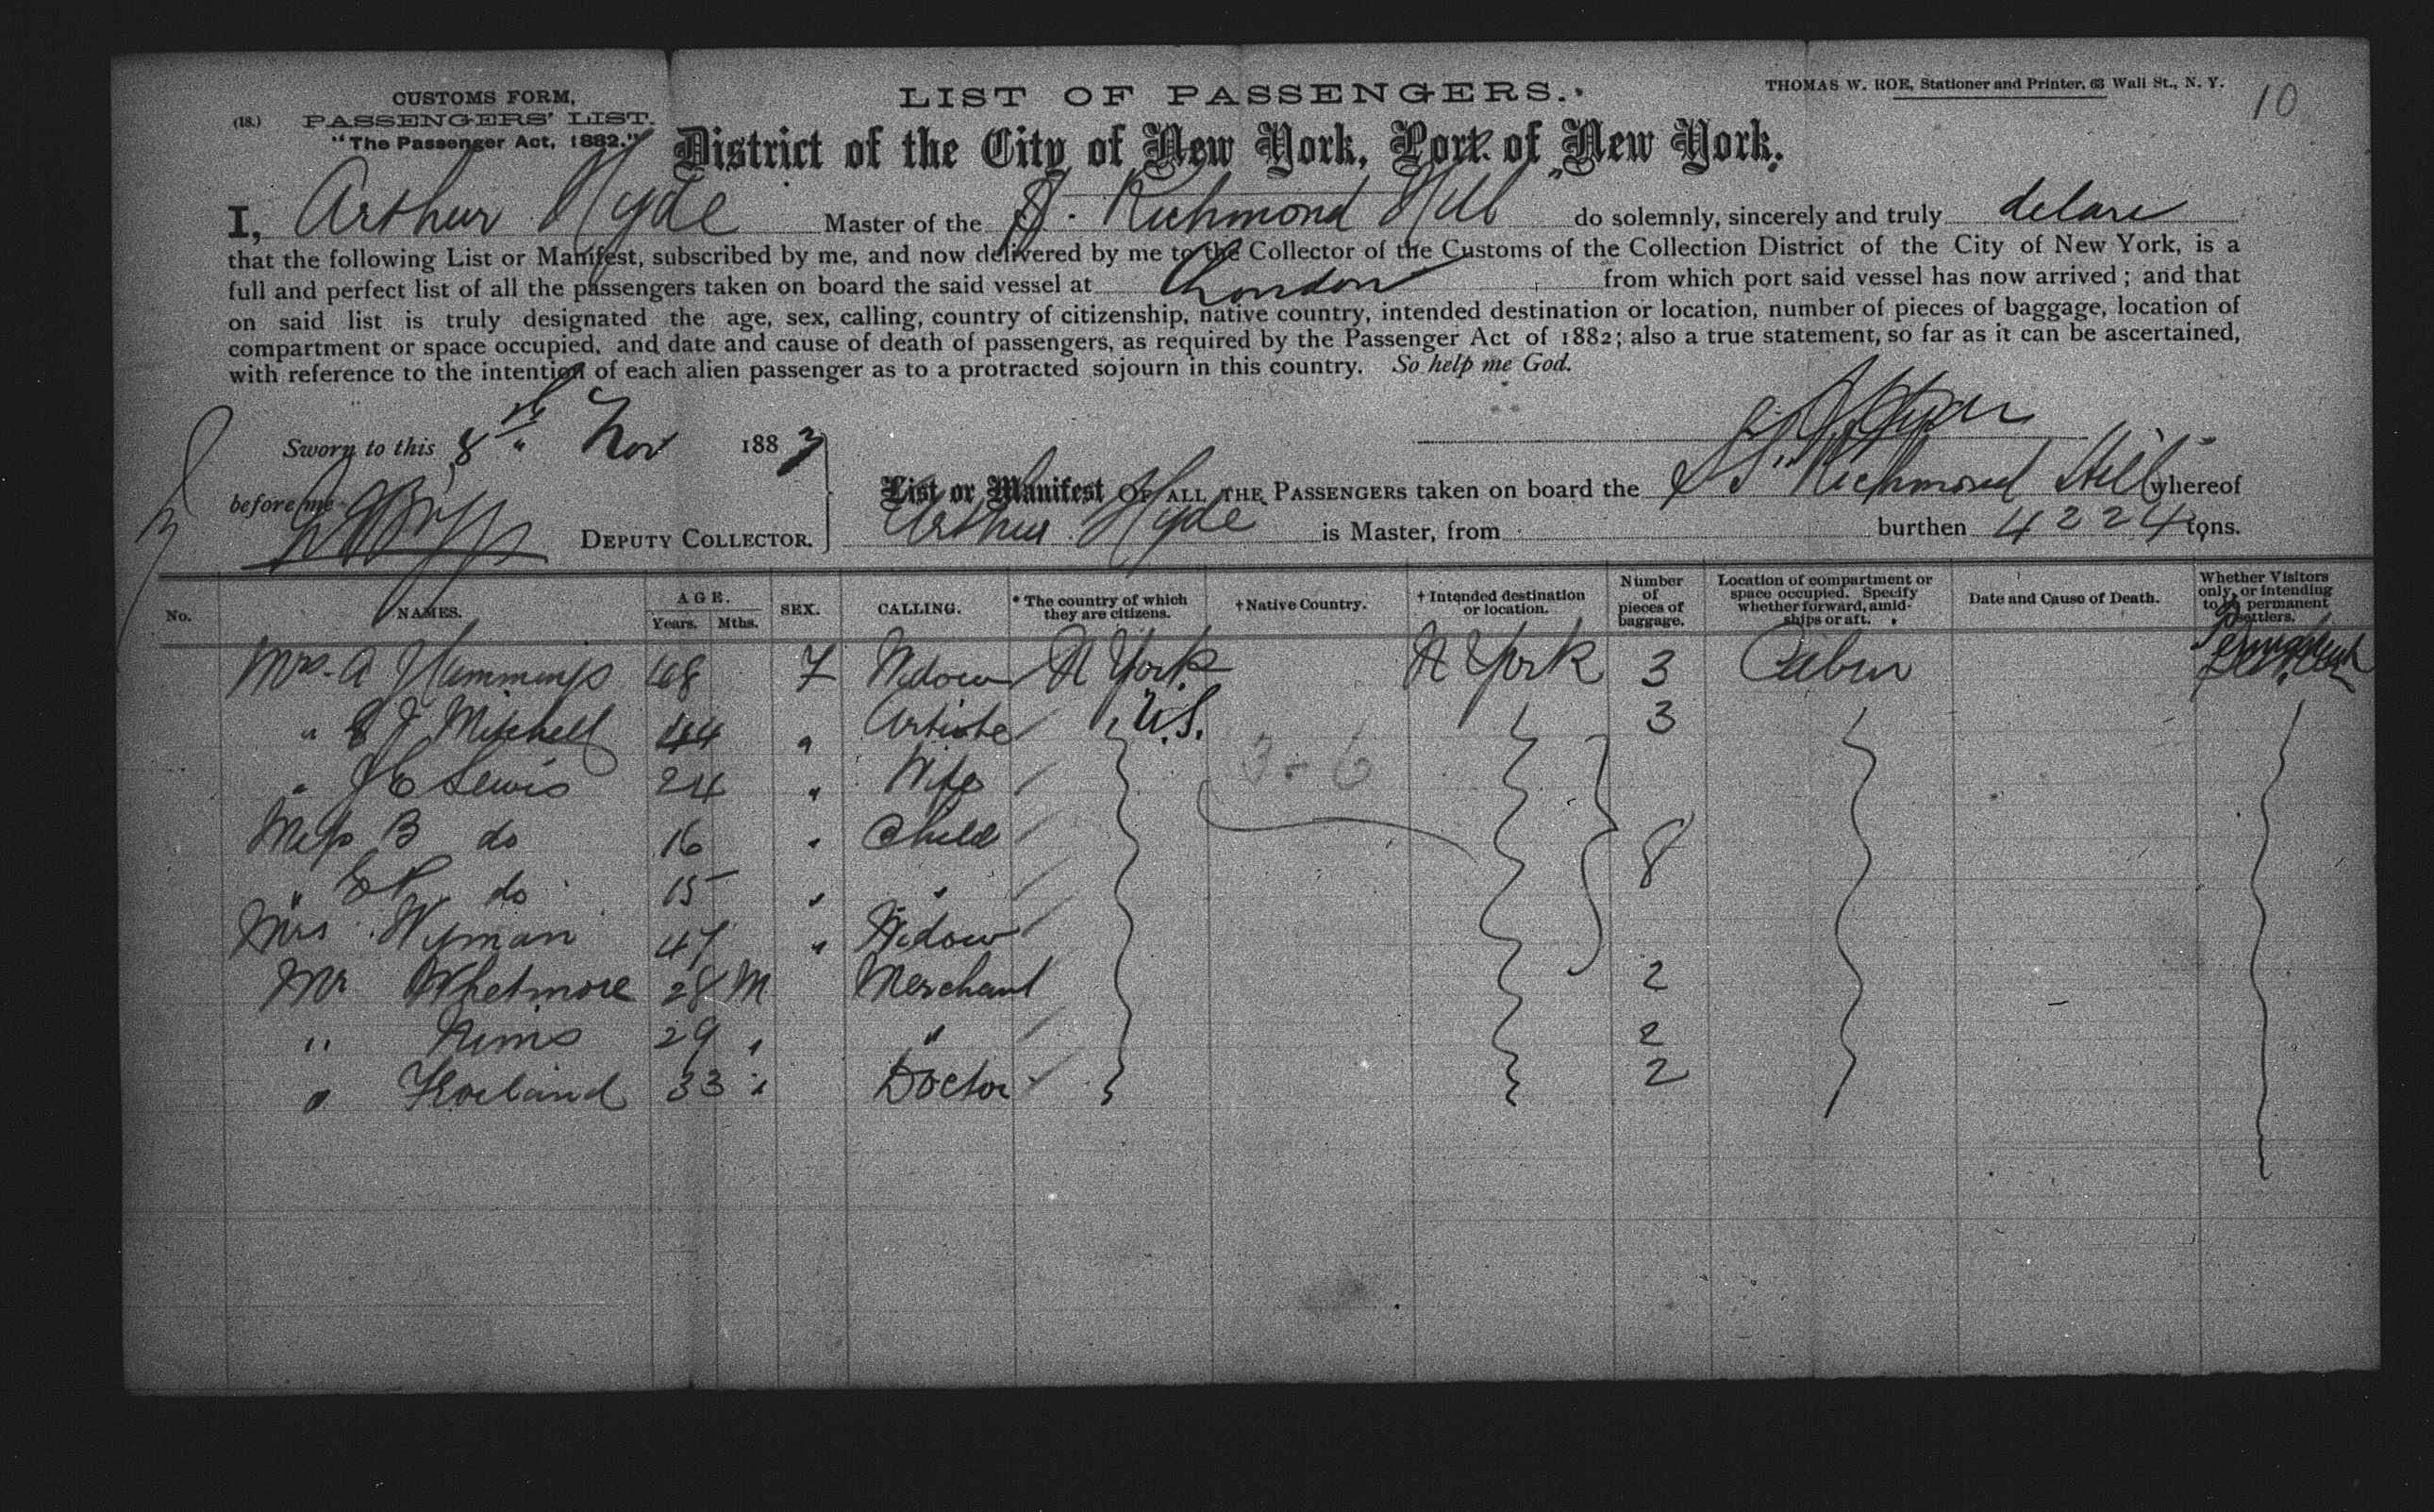 CUSTOMS FORM,
(18.) PASSENGERS' LIST.
"The Passenger Act, 1882."
LIST OF PASSENGERS.
THOMAS W. ROE, Stationer and Printer, 63 Wall St., N. Y.
10
District of the City of New York, Port of New York.
I, Arthur Hyde Master of the SS. Richmond Hill do solemnly, sincerely and truly delare
that the following List or Manifest, subscribed by me, and now delivered by me to the Collector of the Customs of the Collection District of the City of New York, is a
full and perfect list of all the passengers taken on board the said vessel at London from which port said vessel has now arrived; and that
on said list is truly designated the age, sex, calling, country of citizenship, native country, intended destination or location, number of pieces of baggage, location of
compartment or space occupied, and date and cause of death of passengers, as required by the Passenger Act of 1882; also a true statement, so far as it can be ascertained,
with reference to the intention of each alien passenger as to a protracted sojourn in this country. So help me God.
Sworn to this 8th Nov 1883
before me
DEPUTY COLLECTOR.
List or Manifest OF ALL THE PASSENGERS taken on board the SS. Richmond Hill whereof
Arthur Hyde is Master, from burthen 4224 tons.
No. NAMES. AGE. Years. Mths. SEX. CALLING. * The country of which they are citizens. † Native Country. † Intended destination or location. Number of pieces of baggage. Location of compartment or space occupied. Specify whether forward, amidships or aft. Date and Cause of Death. Whether Visitors only, or intending to be permanent settlers.
Mrs. A Hummings 68 F Widow N York N York 3 Cabin
" J Mitchell 44 " Artiste U.S. 3
" J C Lewis 24 " Wife 3-6
Miss B do 16 " Child 8
" do 15 " "
Mrs Wyman 47 " Widow
Mr Whetmore 28 M Merchant 2
" Nims 29 " " 2
" 33 " Doctor 2